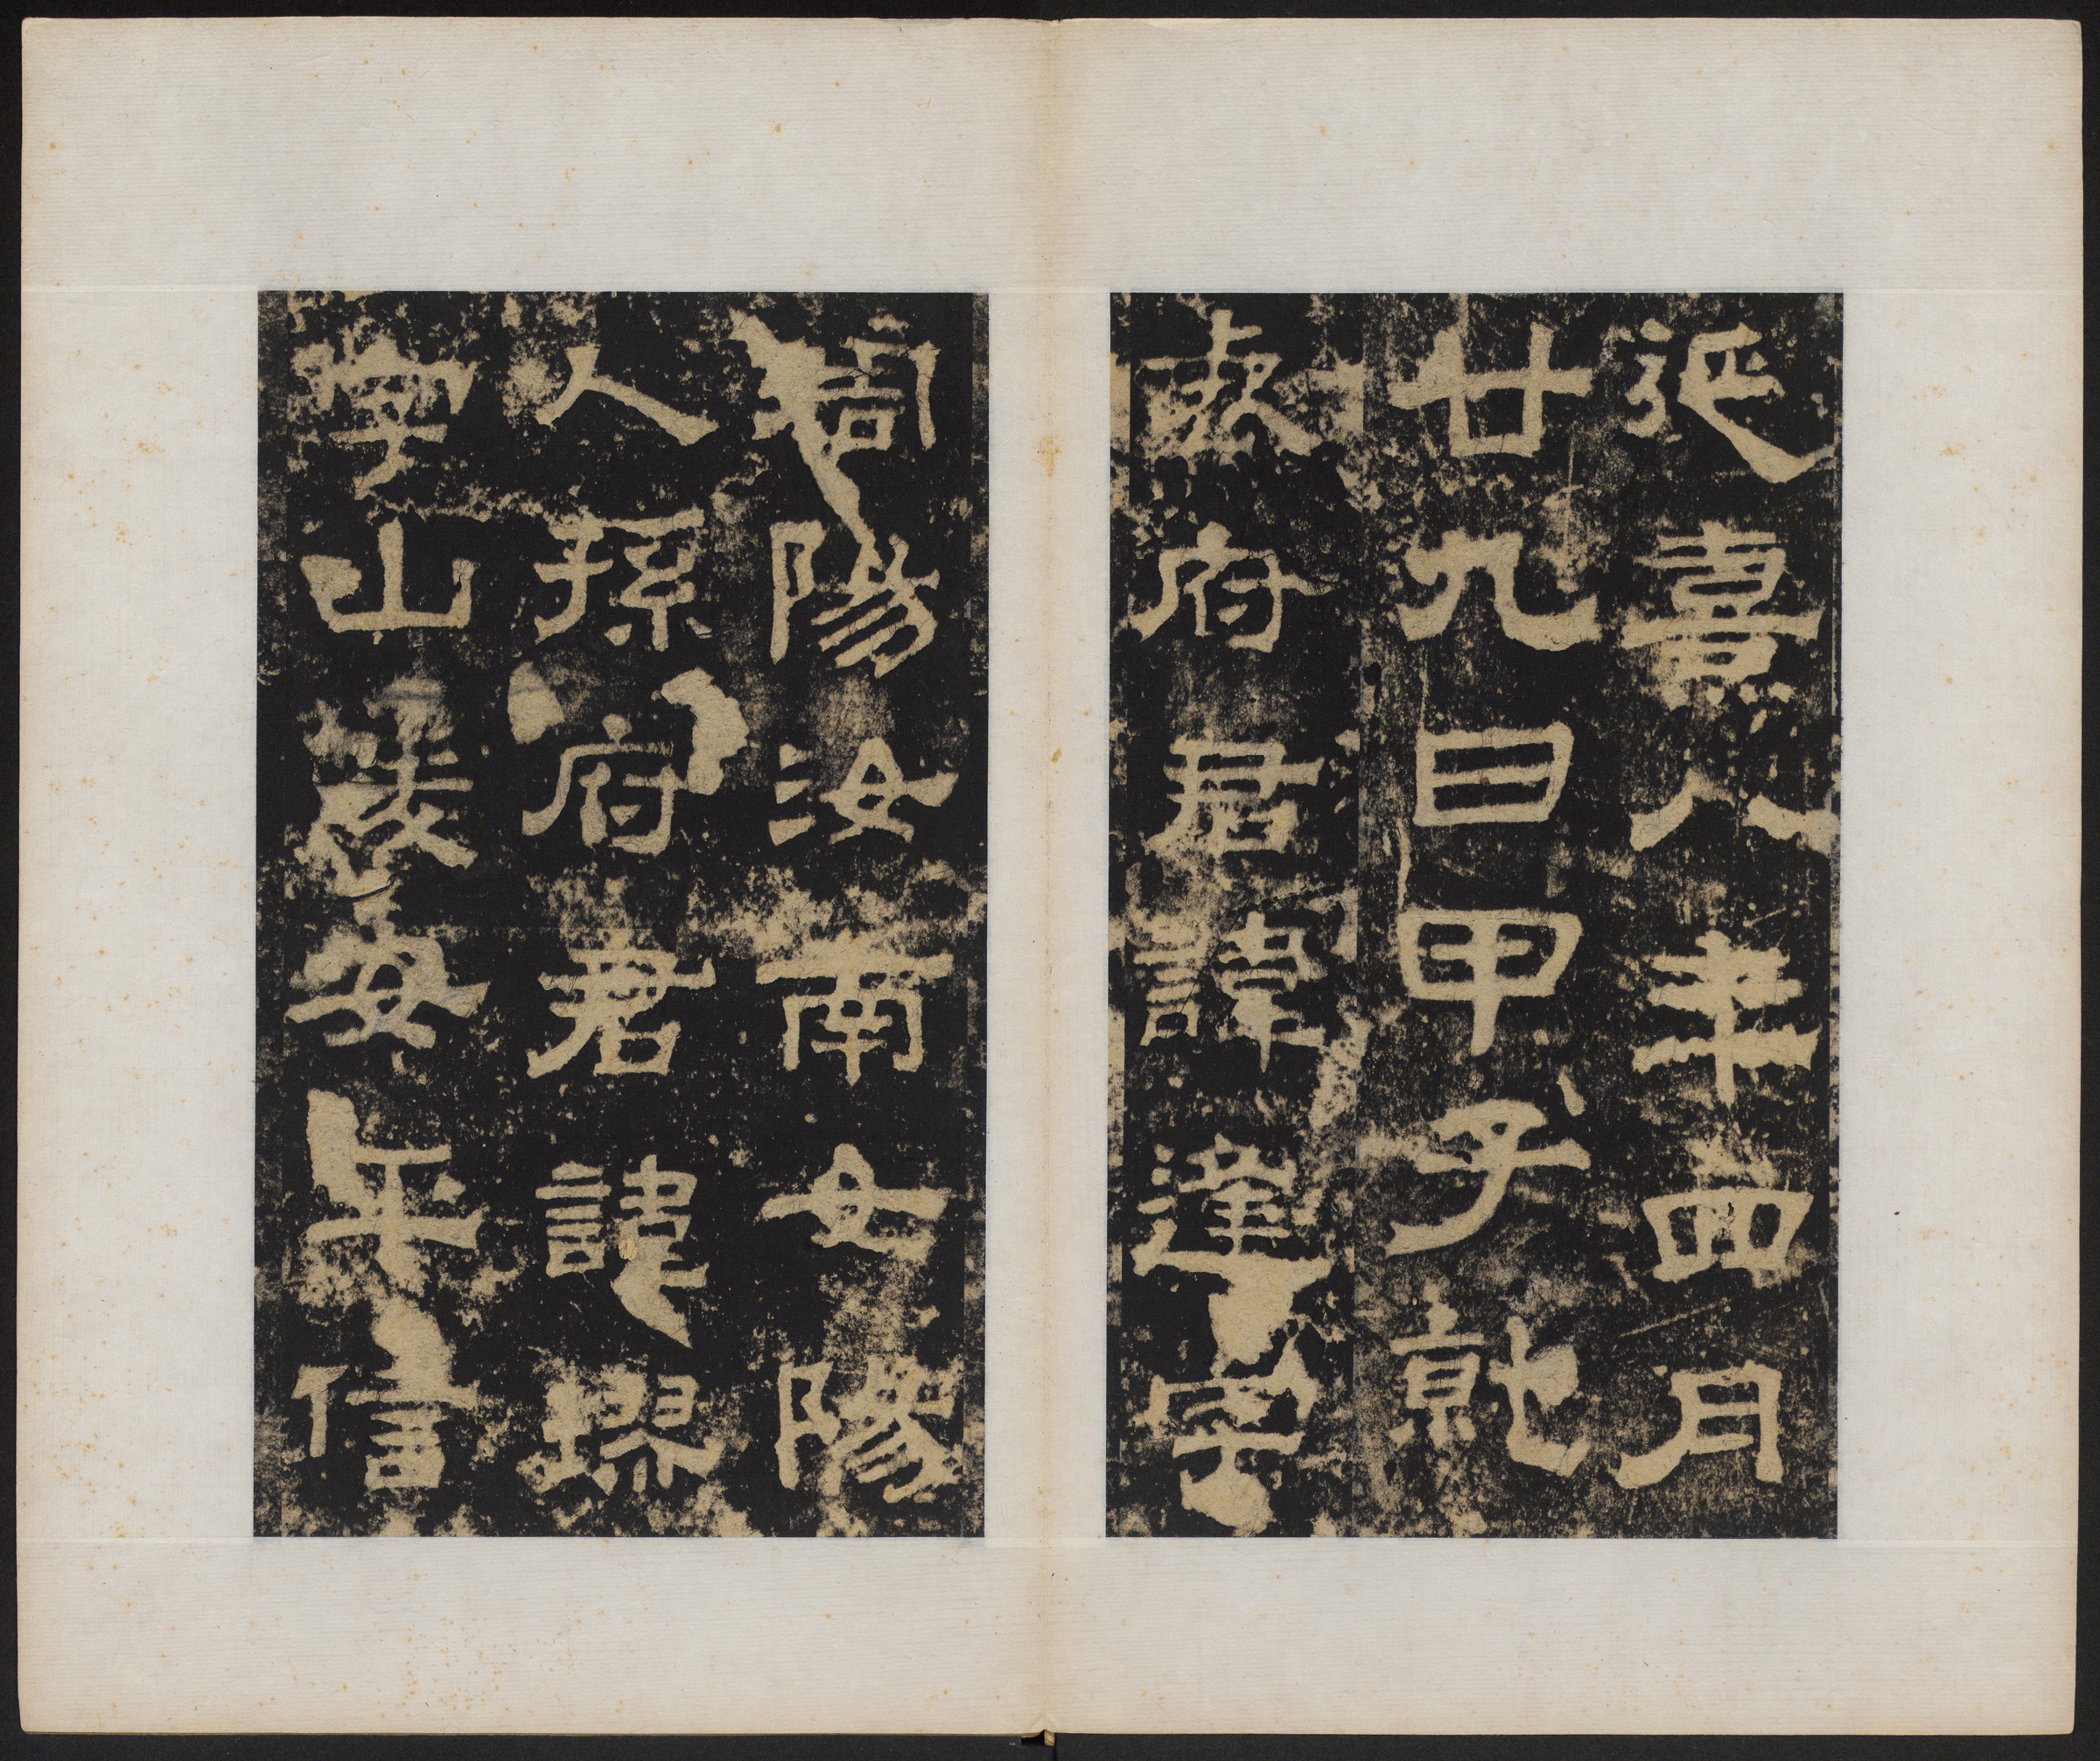 延熹八年四月
廿九日甲子就
袁府君諱逢字
周陽汝南女陽
人孫府君諱璆
字山陵安平信